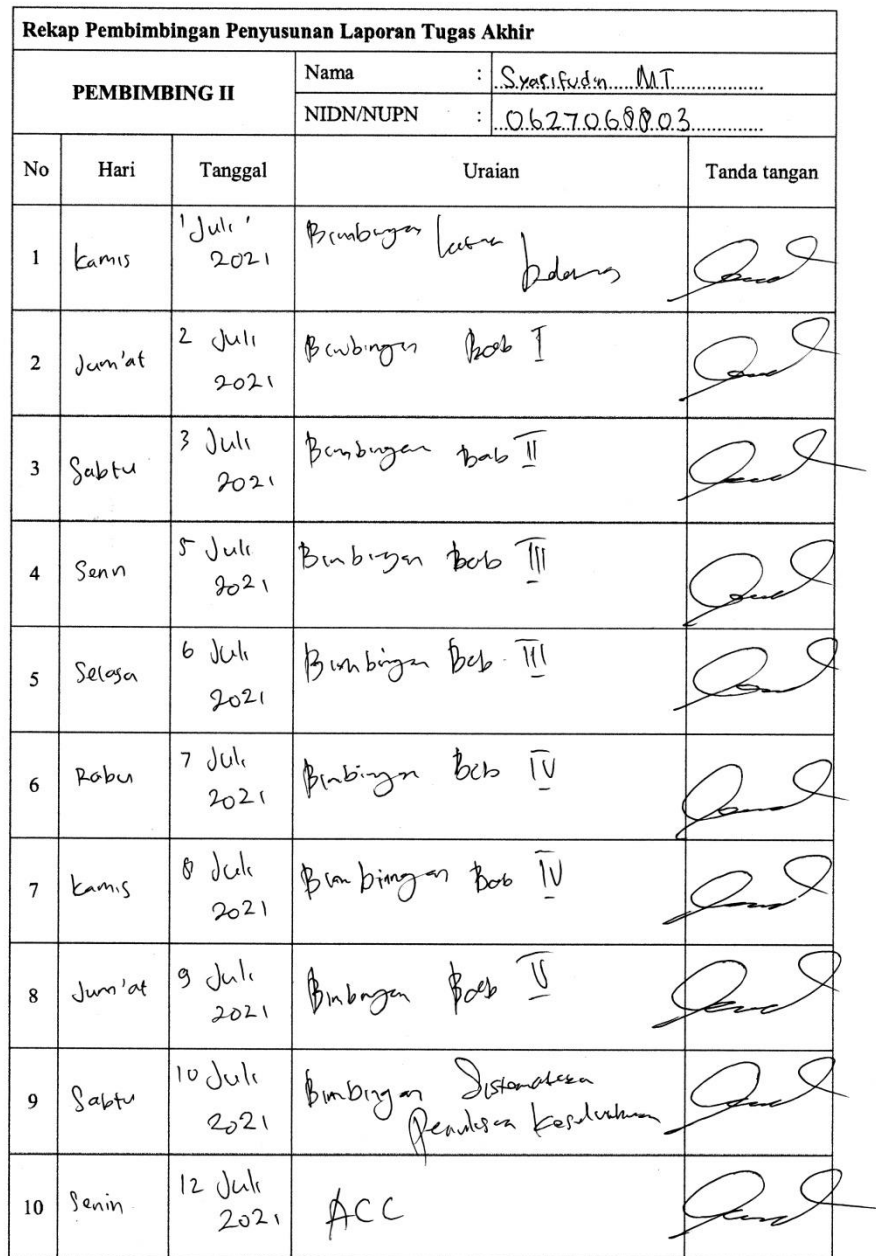 Rekap Pembimbingan Penyusunan Laporan Tugas Akhir
PEMBIMBING II
Nama : Syarifudin MT
NIDN/NUPN : 0627068803
No Hari Tanggal Uraian Tanda tangan
1 Kamis 1 Juli 2021 Bimbingan latar belakang
2 Jum'at 2 Juli 2021 Bimbingan Bab I
3 Sabtu 3 Juli 2021 Bimbingan Bab II
4 Senin 5 Juli 2021 Bimbingan Bab III
5 Selasa 6 Juli 2021 Bimbingan Bab III
6 Rabu 7 Juli 2021 Bimbingan Bab IV
7 Kamis 8 Juli 2021 Bimbingan Bab IV
8 Jum'at 9 Juli 2021 Bimbingan Bab V
9 Sabtu 10 Juli 2021 Bimbingan Sistematika Penulisan Keseluruhan
10 Senin 12 Juli 2021 ACC